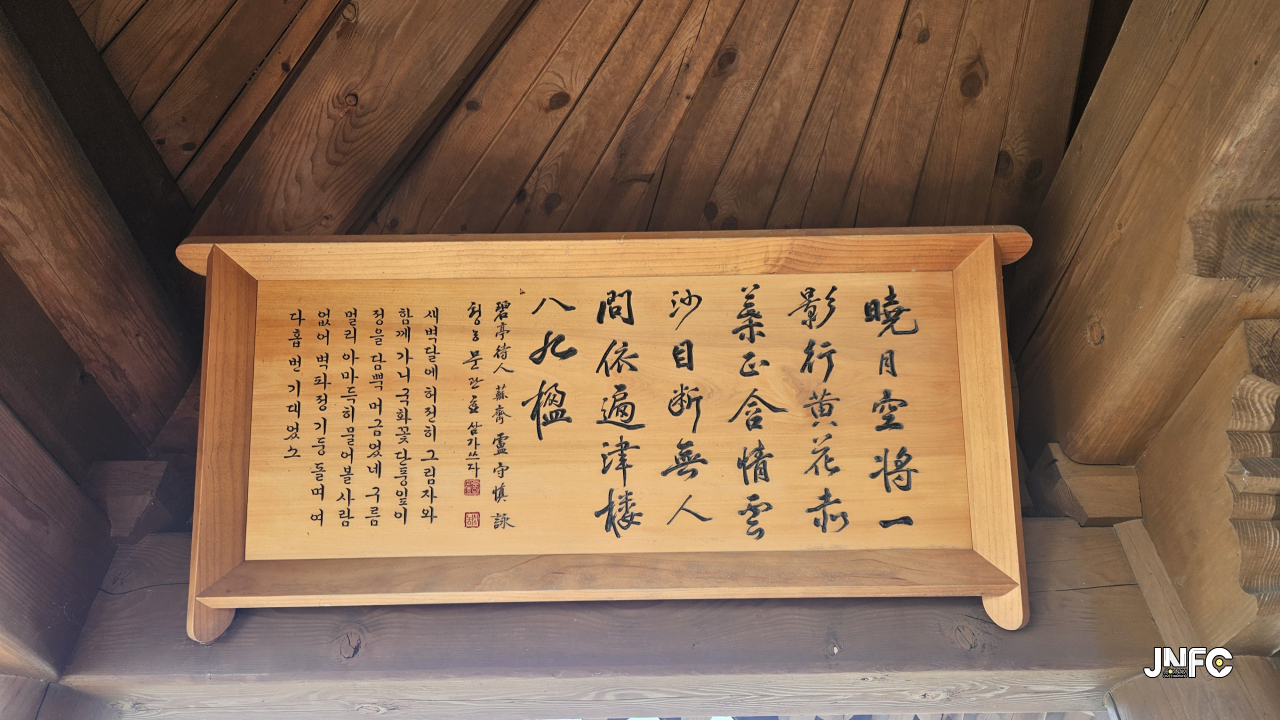 曉月空将一
影行黃花赤
葉正含情雲
沙目断無人
問依遍津楼
八九楹
碧亭待人 蘇齋 盧守愼 詠
청농 문관효 삼가쓰다
새벽달에 허전히 그림자와
함께 가니 국화꽃 단풍잎이
정을 담뿍 머금었네 구름
멀리 아마득히 물어볼 사람
없어 벽파정 기둥 돌며 여
다홉 번 기대었소
JNFC